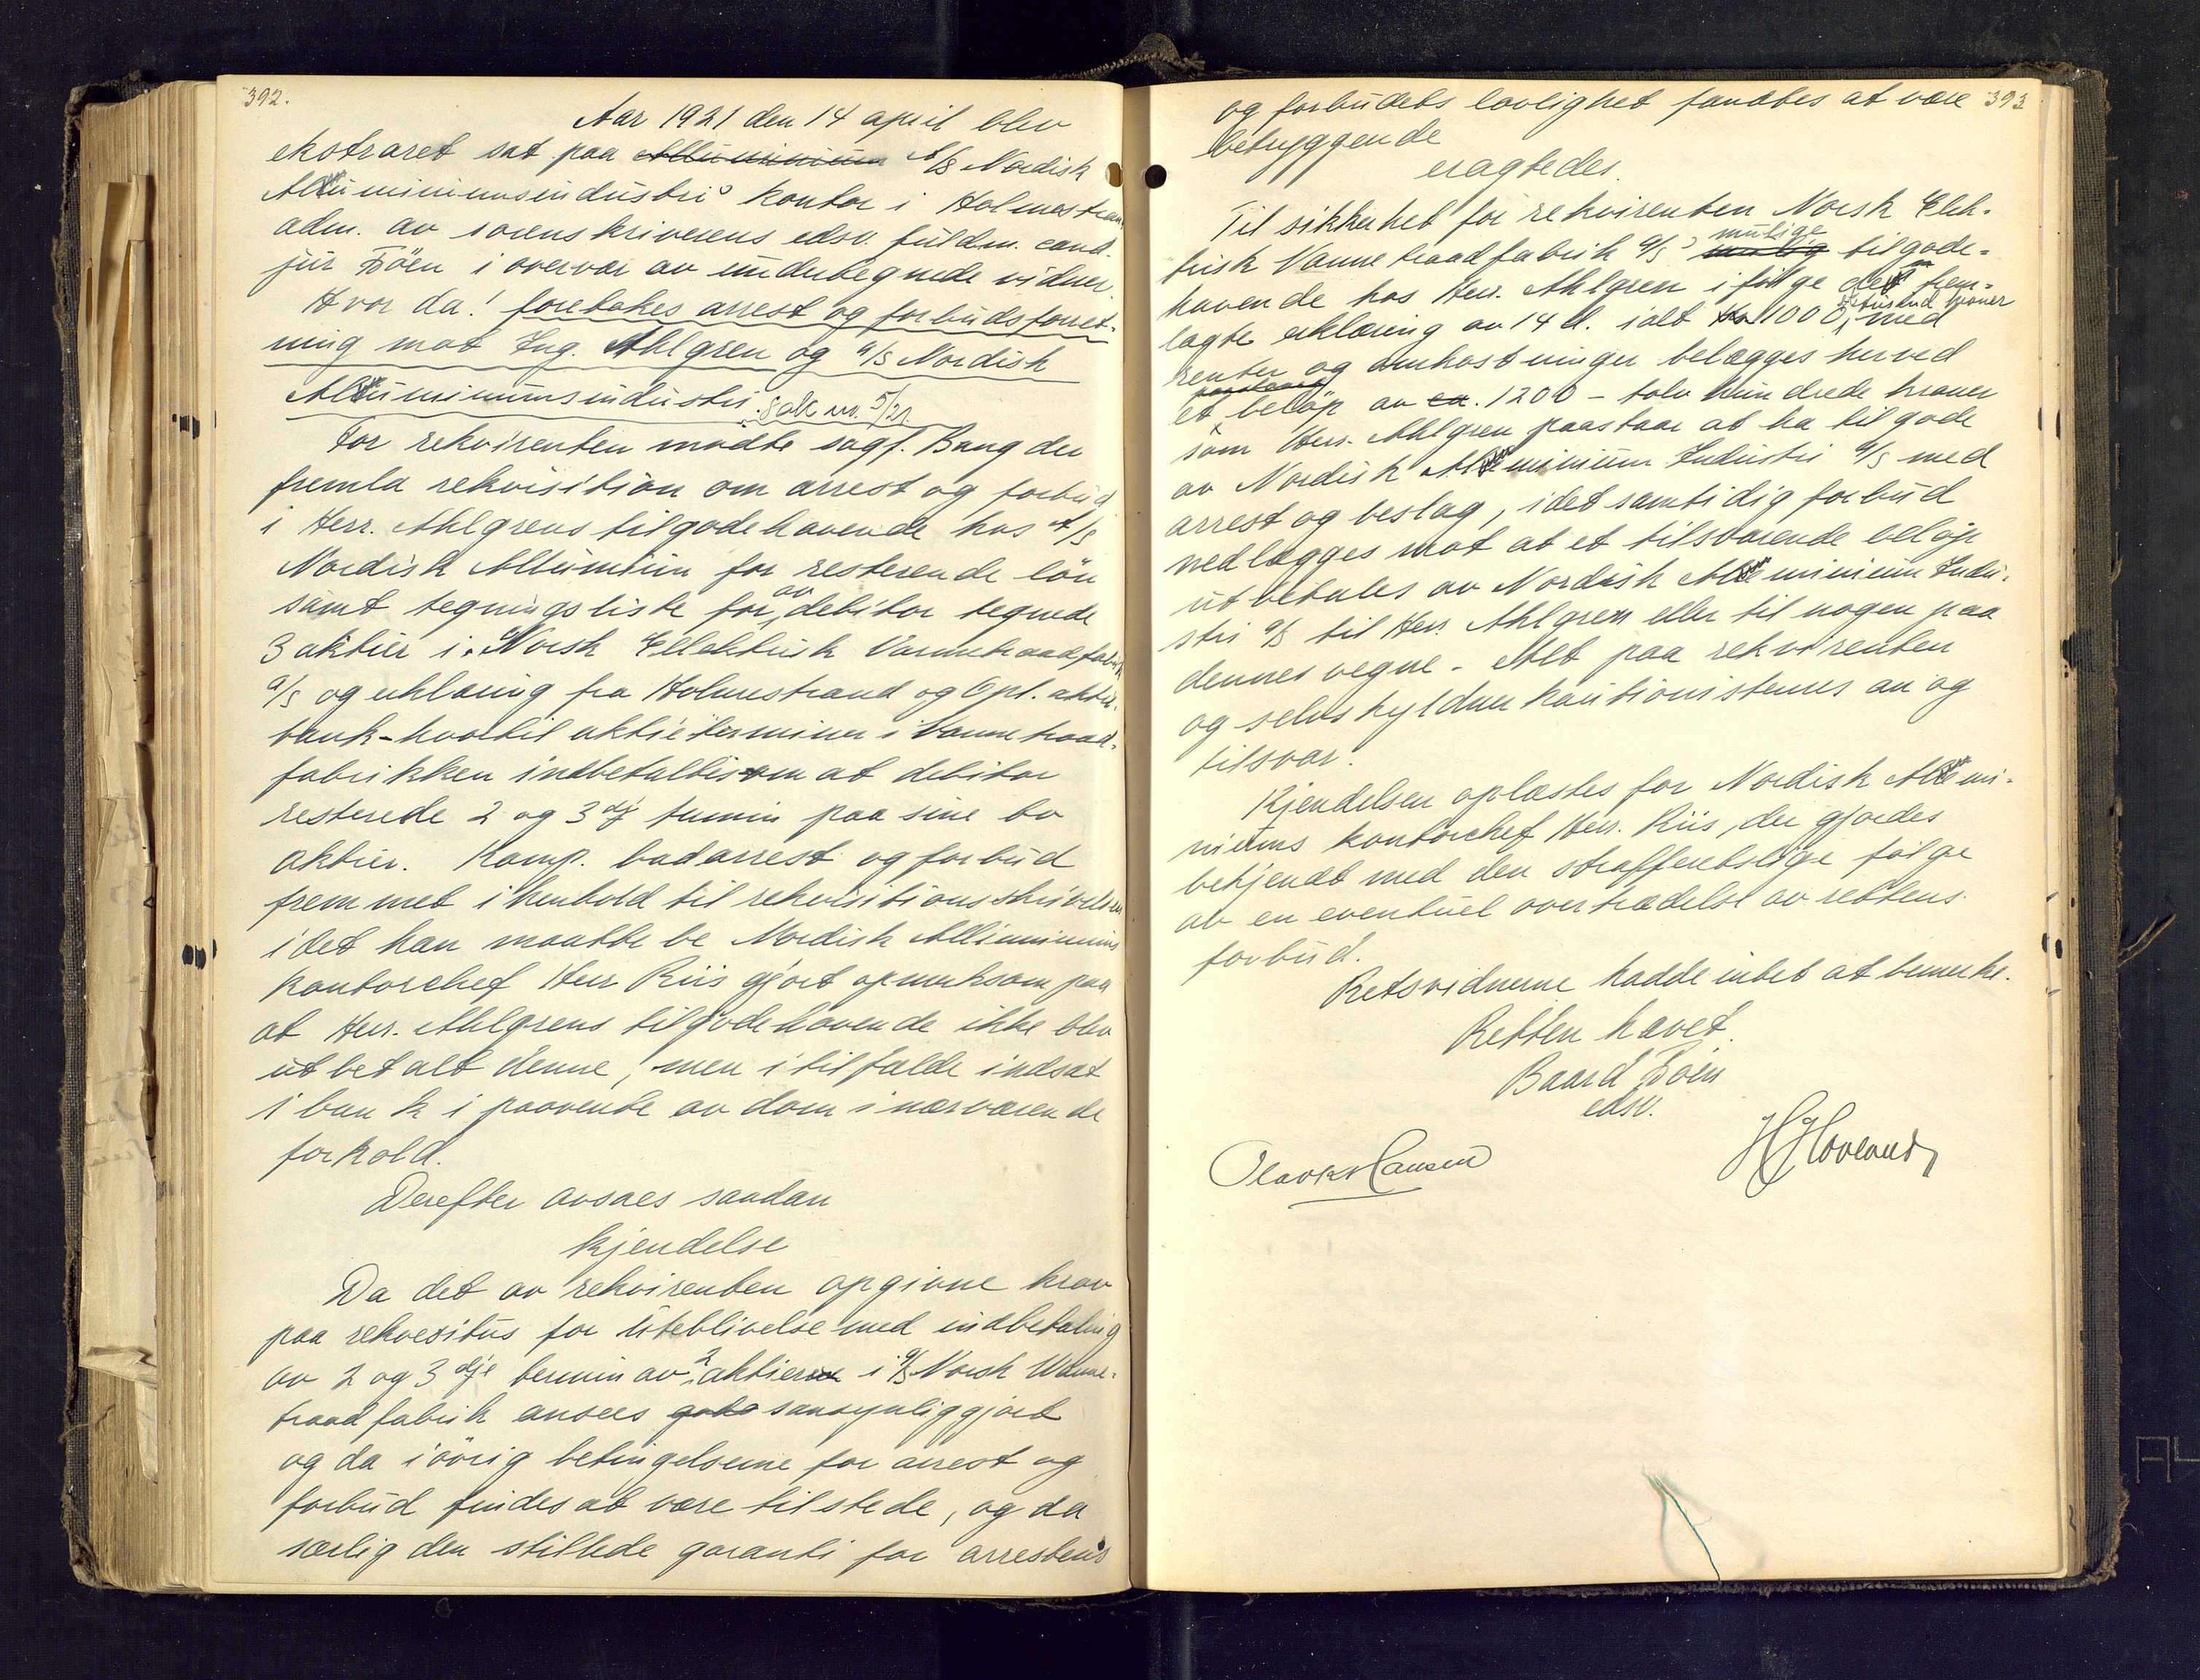 392.
Aar 1921 den 14 april blev
ekstraret sat paa Alluminium A/S Nordisk
Aluminiumsindustri's kontor i Holmestrand
adm. av sorenskriverens edsv. fuldm. cand.
jur Böen i overvær av undertegnede vidner.
Hvor da! foretokes arrest og forbudsforret-
ning mot Ing. Ahlgren og A/S Nordisk
Aluminiumsindustri. Sak nr. 5/21.
For rekvirenten mødte sagf. Bang der
fremla rekvisition om arrest og forbud
i Herr. Ahlgrens tilgodehavende hos A/S
Nordisk Alluminium for resterende løn
samt tegningsliste for av debitor tegnede
3 aktier i Norsk Ellektrisk Varmetraadfabrik
A/S og erklæring fra Holmestrand og Opl. aktie-
bank - hvortil aktieterminer i Varmetraad-
fabrikken indbetaltes om at debitor
resterede 2 og 3dje termin paa sine to
aktier. Komp. bad arrest og forbud
fremmet i henhold til rekvisitionsskrivelsen
idet han maatte be Nordisk Alluminiums
kontorchef Herr Riis gjort opmerksom paa
at Herr. Ahlgrens tilgodehavende ikke blev
utbetalt denne, men i tilfælde indsat
i bank i paavente av dom i nærværende
forhold.
Derefter avsaes saadan
kjendelse
Da det av rekvirenten opgivne krav
paa rekvesitus for uteblivelse med indbetaling
av 2 og 3dje termin av 2 aktier i A/S Norsk Varme-
traadfabrik ansees godt sansynliggjort
og da iövrig betingelserne for arrest og
forbud findes at være tilstede, og da
særlig den stillede garanti for arrestens
393
og forbudets lovlighet fandtes at være
betryggende
eragtedes.
Til sikkerhet for rekvirenten Norsk Elek-
trisk Varmetraadfabrik A/S's mulig mulige tilgode-
havende hos Herr. Ahlgren ifølge den frem-
lagte erklæring av 14 d. ialt kr 1000, ettusind kroner med
renter og omkostninger belægges herved
et paastaaet beløp av ca. 1200 - tolv hundrede kroner
som Herr. Ahlgren paastaar at ha tilgode
av Nordisk Aluminium Industri A/S med
arrest og beslag, idet samtidig forbud
nedlægges mot at et tilsvarende beløp
utbetales av Nordisk Aluminium Indu-
stri A/S til Herr. Ahlgren eller til nogen paa
dennes vegne. Alt paa rekvirenten
og selvskyldnerkautionisternes an og
tilsvar.
Kjendelsen oplæstes for Nordisk Alumi-
niums kontorchef Herr. Riis, der gjordes
bekjendt med den strafferetslige følge
av en eventuel overtrædelse av rettens
forbud.
Retsvidnerne hadde intet at bemerke.
Retten hævet.
Baard Böen
edsv.
Olav Hansen
H Hoveland